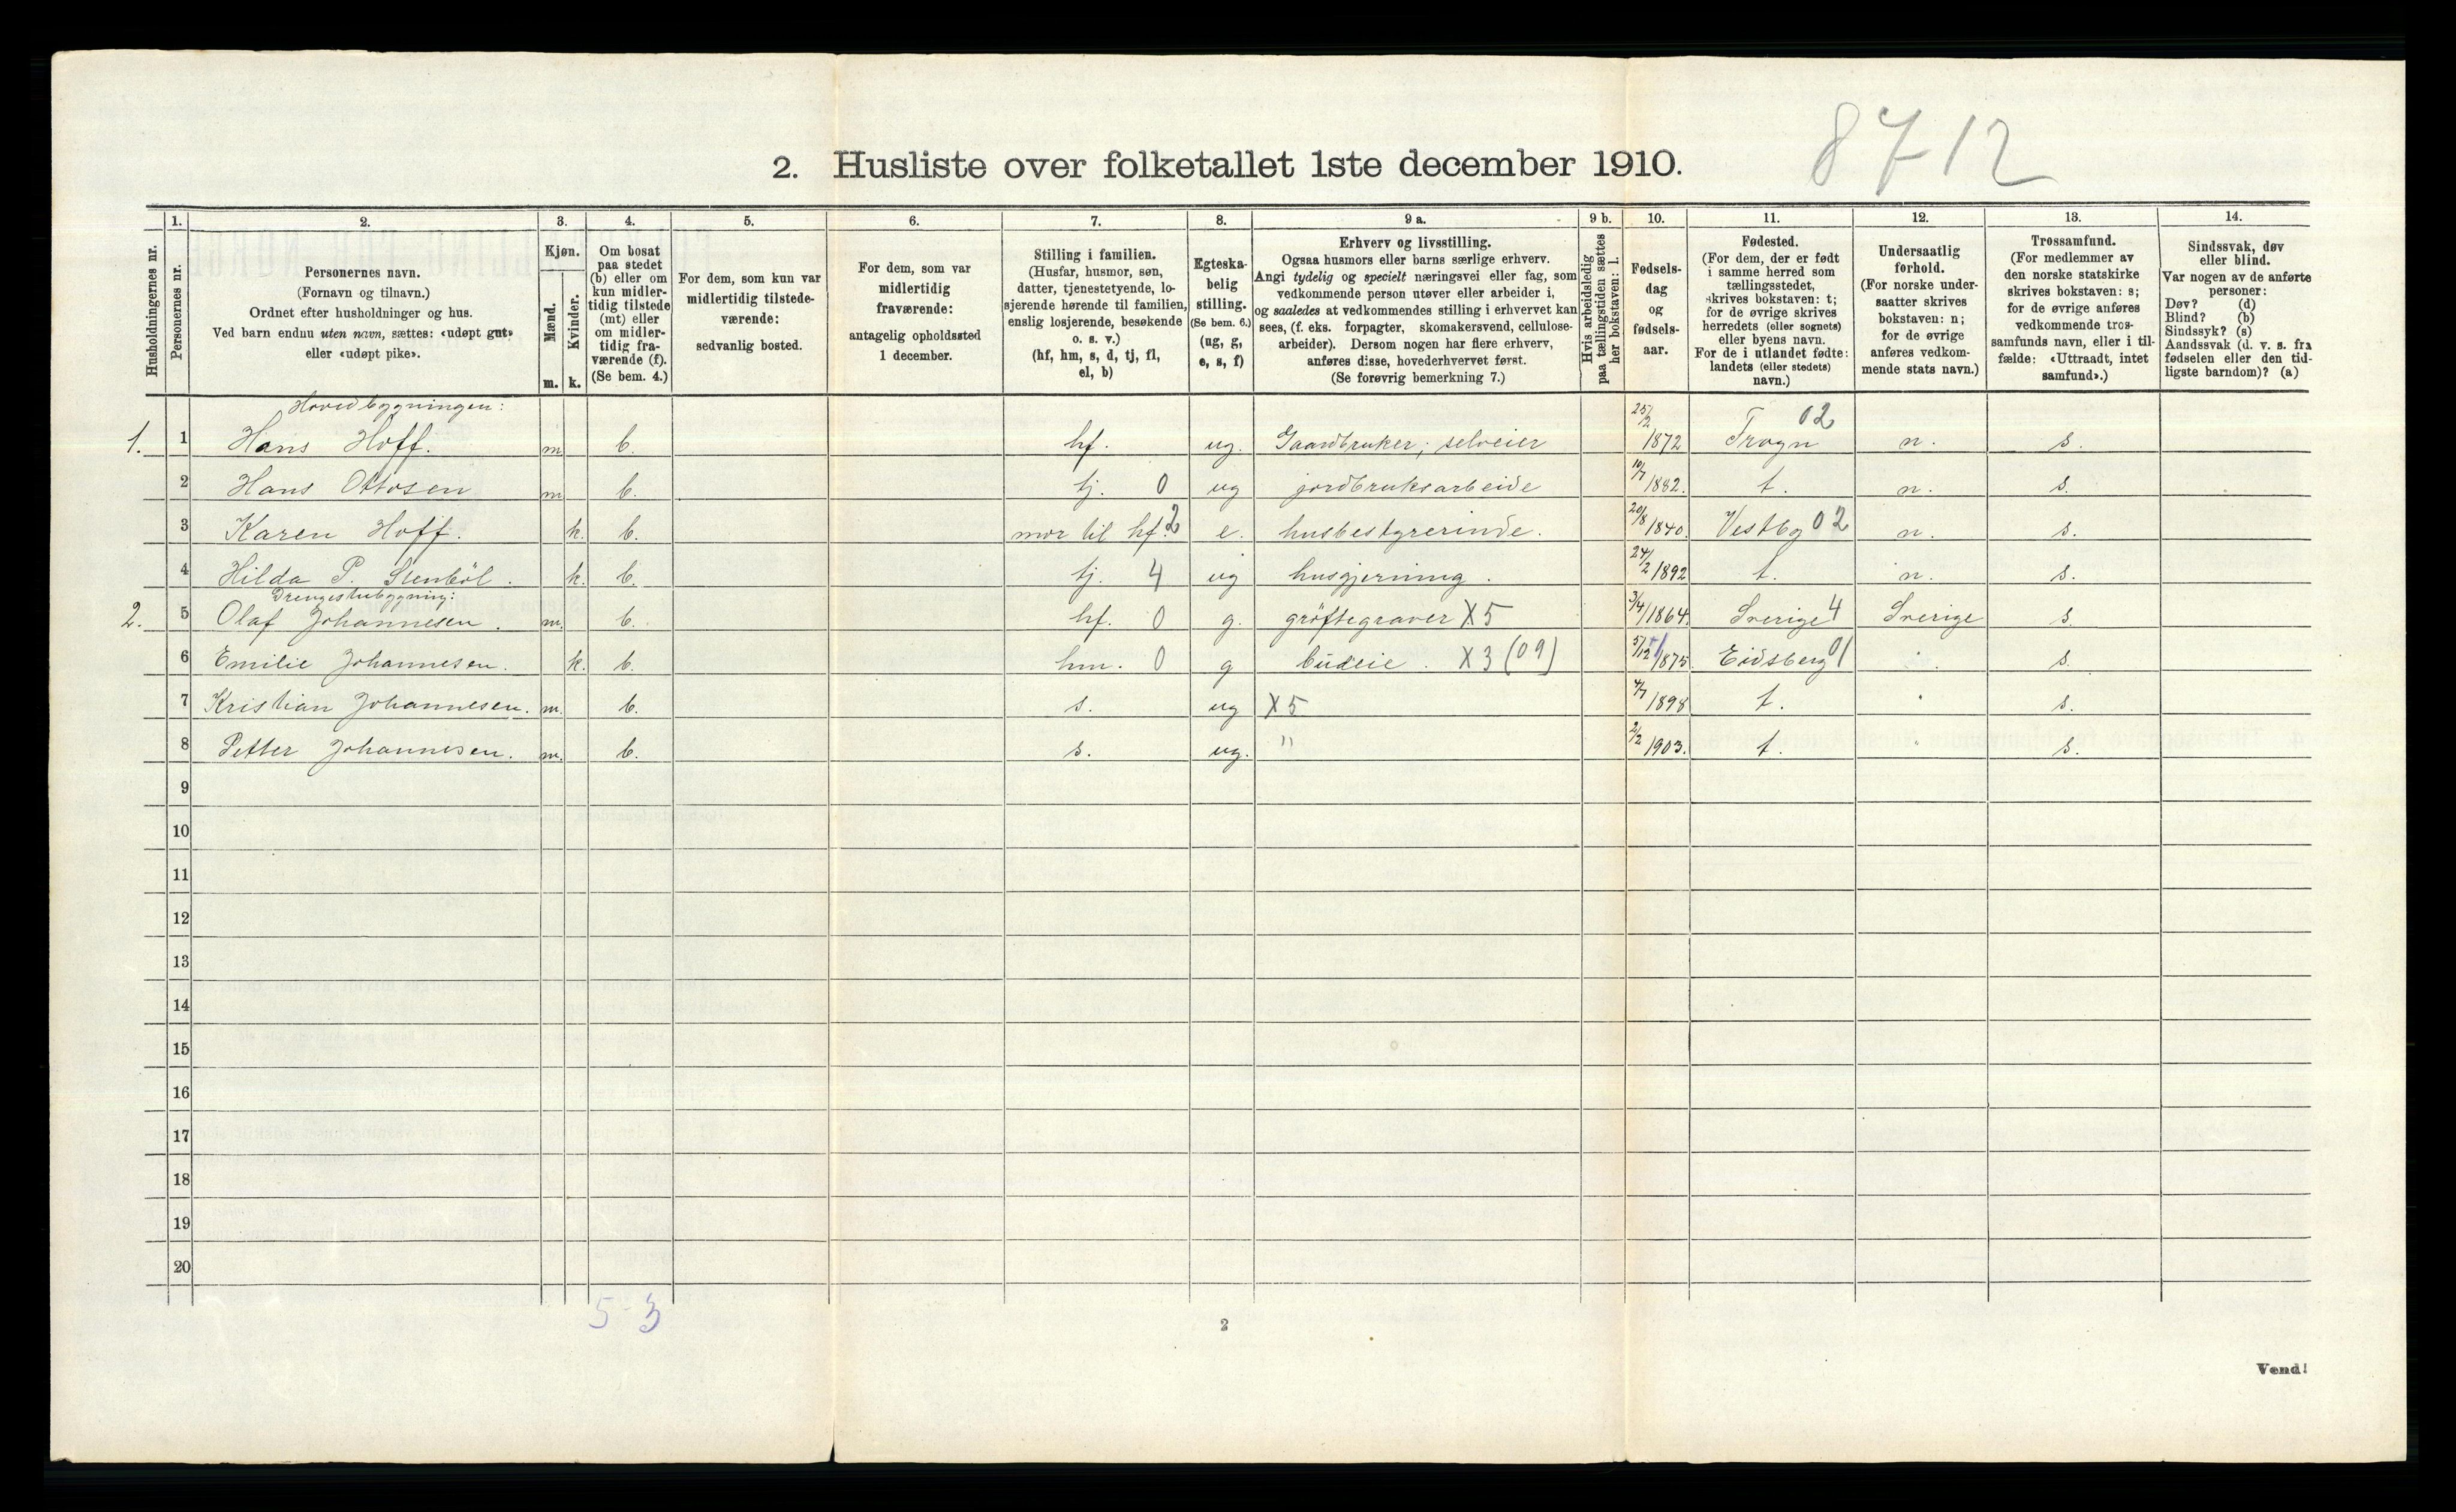 8712
2. Husliste over folketallet 1ste december 1910.
Husholdningernes nr.
1.
Personernes nr.
2.
Personernes navn.
(Fornavn og tilnavn.)
Ordnet efter husholdninger og hus.
Ved barn endnu uten navn, sættes: «udøpt gut»
eller «udøpt pike».
3.
Kjøn.
Mænd.
Kvinder.
m. k.
4.
Om bosat
paa stedet
(b) eller om
kun midler-
tidig tilstede
(mt) eller
om midler-
tidig fra-
værende (f).
(Se bem. 4.)
5.
For dem, som kun var
midlertidig tilstede-
værende:
sedvanlig bosted.
6.
For dem, som var
midlertidig
fraværende:
antagelig opholdssted
1 december.
7.
Stilling i familien.
(Husfar, husmor, søn,
datter, tjenestetyende, lo-
sjerende hørende til familien,
enslig losjerende, besøkende
o. s. v.)
(hf, hm, s, d, tj, fl,
el, b)
8.
Egteska-
belig
stilling.
(Se bem. 6.)
(ug, g,
e, s, f)
9 a.
Erhverv og livsstilling.
Ogsaa husmors eller barns særlige erhverv.
Angi tydelig og specielt næringsvei eller fag, som
vedkommende person utøver eller arbeider i,
og saaledes at vedkommendes stilling i erhvervet kan
sees, (f. eks. forpagter, skomakersvend, cellulose-
arbeider). Dersom nogen har flere erhverv,
anføres disse, hovederhvervet først.
(Se forøvrig bemerkning 7.)
9 b.
Hvis arbeidsledig
paa tællingstiden sættes
her bokstaven: l.
10.
Fødsels-
dag
og
fødsels-
aar.
11.
Fødested.
(For dem, der er født
i samme herred som
tællingsstedet,
skrives bokstaven: t;
for de øvrige skrives
herredets (eller sognets)
eller byens navn.
For de i utlandet fødte:
landets (eller stedets)
navn.)
12.
Undersaatlig
forhold.
(For norske under-
saatter skrives
bokstaven: n;
for de øvrige
anføres vedkom-
mende stats navn.)
13.
Trossamfund.
(For medlemmer av
den norske statskirke
skrives bokstaven: s;
for de øvrige anføres
vedkommende tros-
samfunds navn, eller i til-
fælde: «Uttraadt, intet
samfund».)
14.
Sindssvak, døv
eller blind.
Var nogen av de anførte
personer:
Døv? (d)
Blind? (b)
Sindssyk? (s)
Aandssvak (d. v. s. fra
fødselen eller den tid-
ligste barndom)? (a)
Hovedbygningen:
1. 1 Hans Hoff. m b. hf. ug. Gaardbruker; selveier 25/2 1872 Frogn 02 n. s.
2 Hans Ottosen m b. tj. 0 ug jordbruksarbeide 10/7 1882. t. n. s.
3 Karen Hoff. k. b. mor til hf. 2 e. husbestyrerinde. 20/8 1840. Vestby 02 n. s.
4 Hilda P. Stenböl. k. b. tj. 4 ug husgjerning. 24/2 1892 t. n. s.
Drengestubygning:
2. 5 Olaf Johannesen. m. b. hf. 0 g. gröftegraver X5 3/4 1864. Sverige 4 Sverige s.
6 Emilie Johannesen. k. b. hm. 0 g budeie. X3 (09) 5/12 1875. Eidsberg 01 " s.
7 Kristian Johannesen. m. b. s. ug X5 4/7 1898 t. " s.
8 Petter Johannesen. m. b. s. ug. " 2/2 1903. t. " s.
9
10
11
12
13
14
15
16
17
18
19
20
5-3
2
Vend!